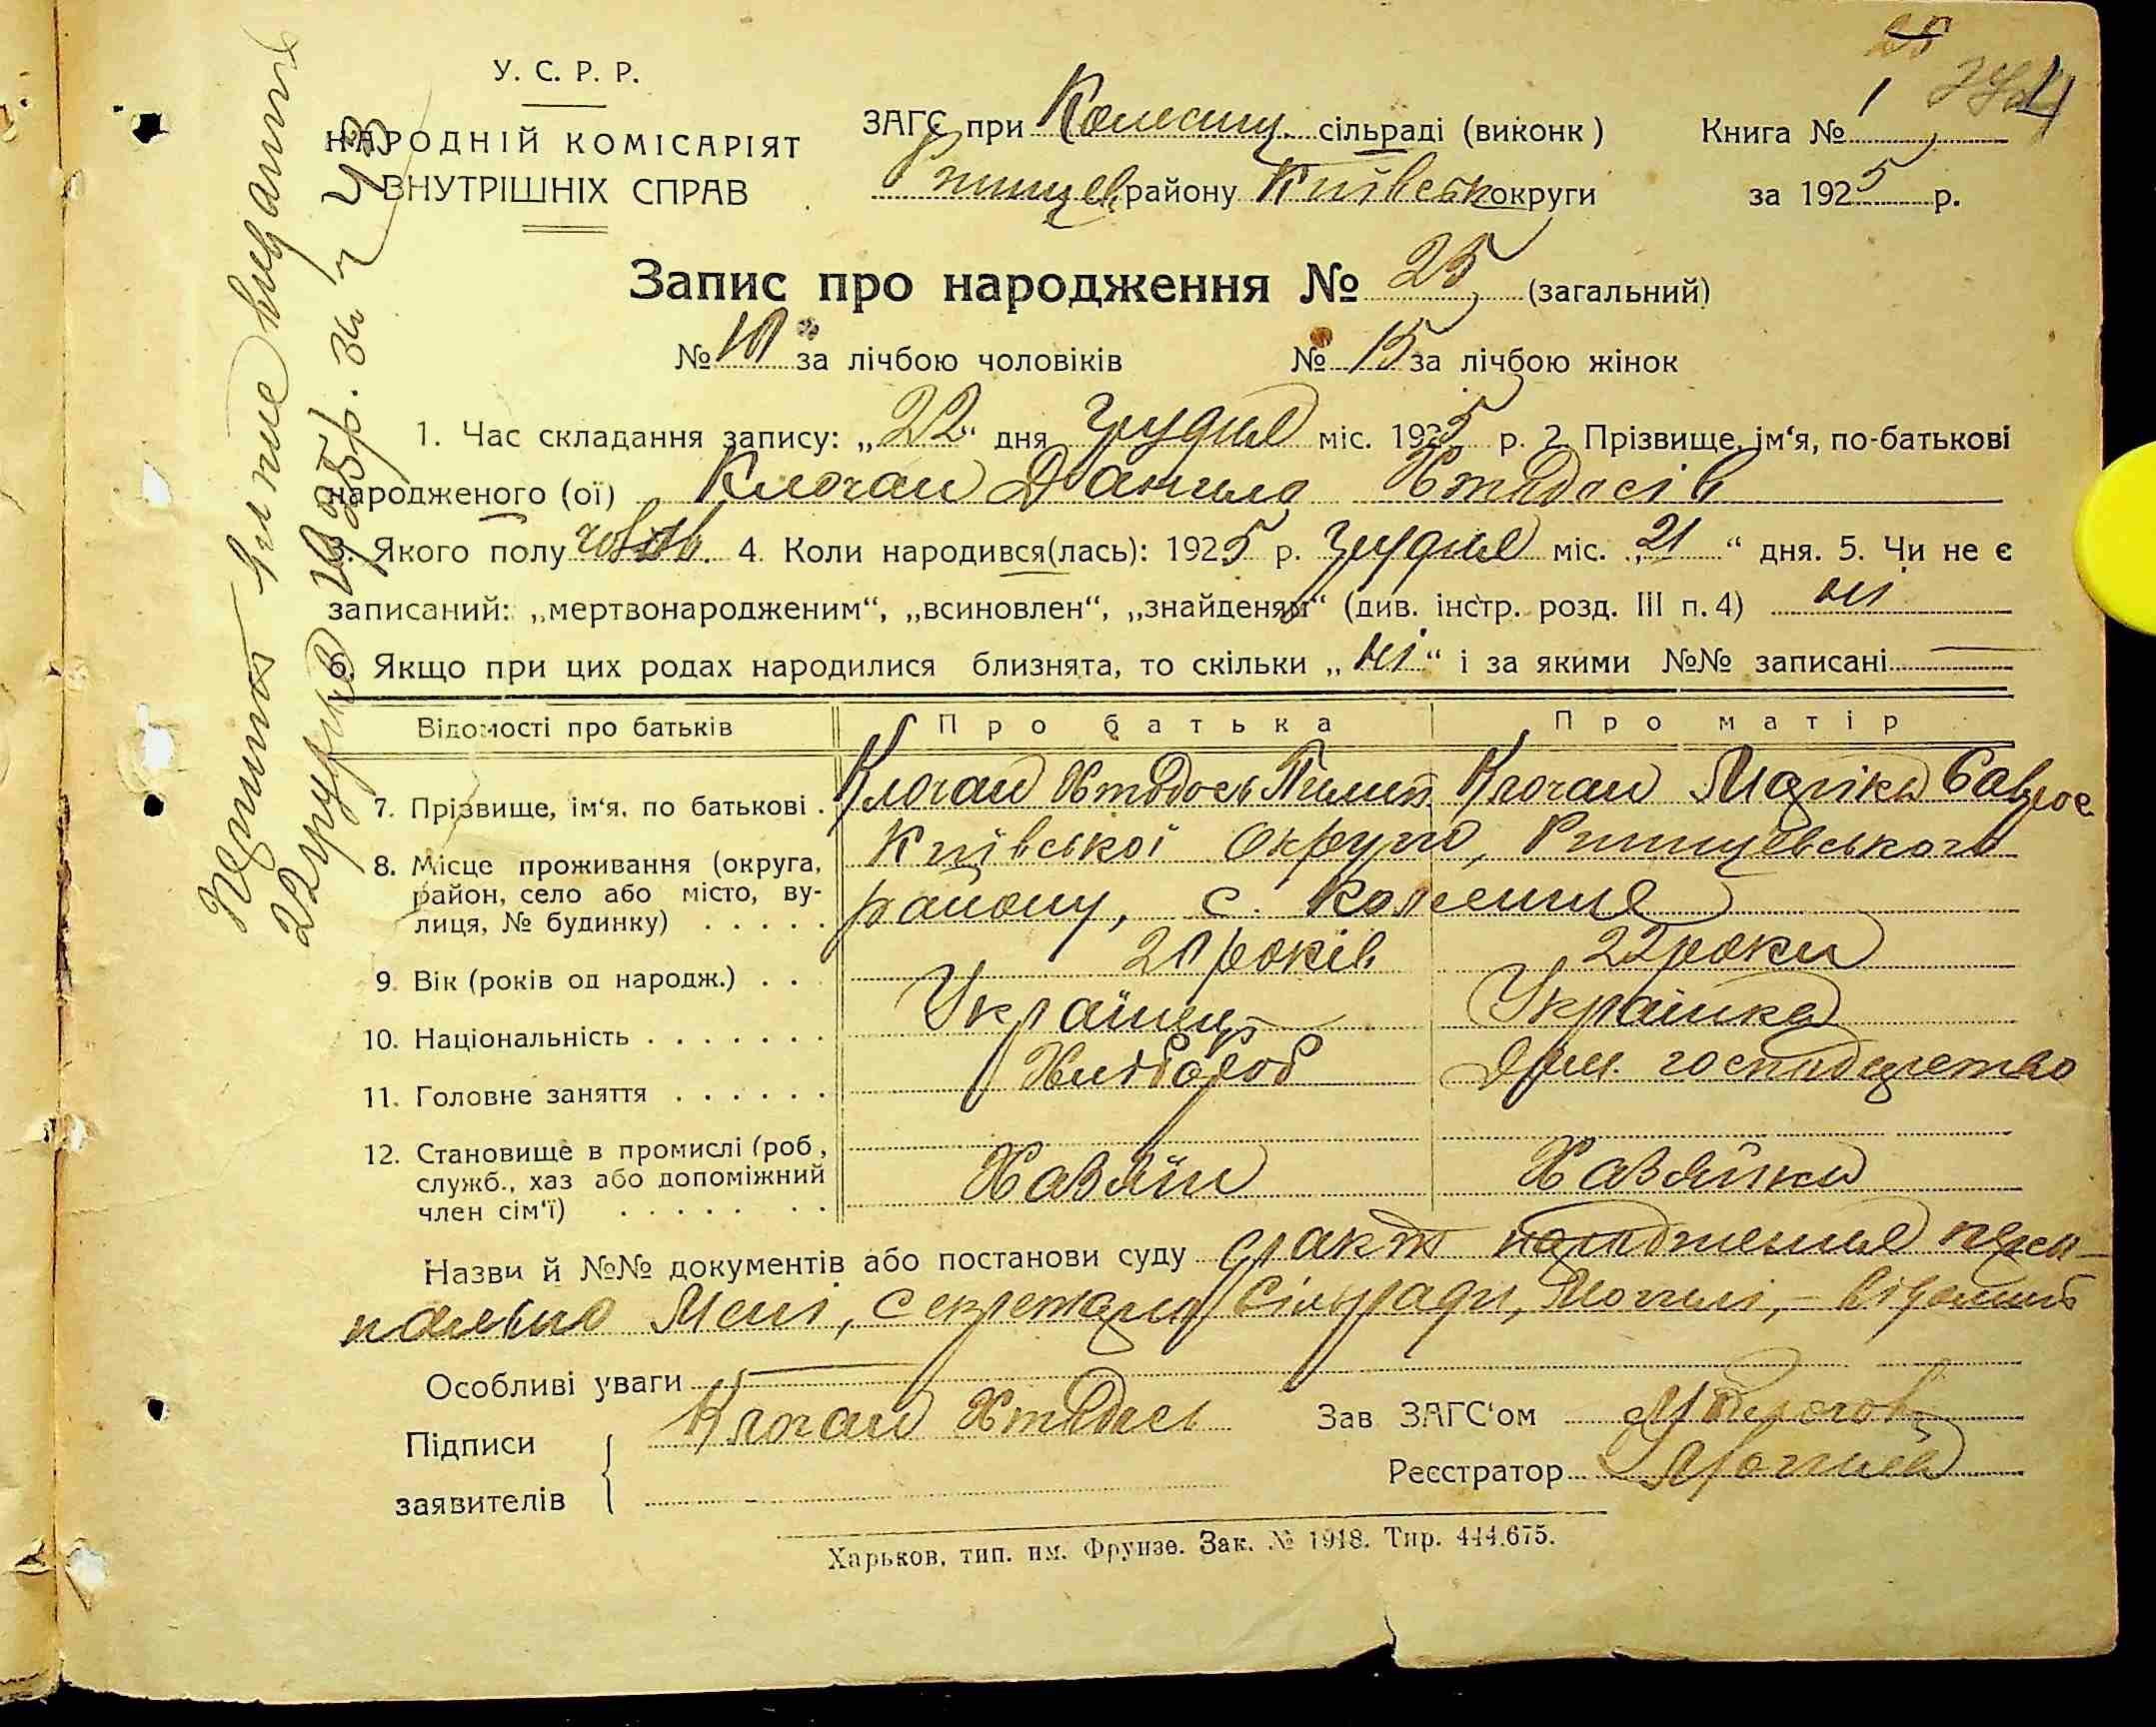 У. С. Р. Р.
НАРОДНІЙ КОМІСАРІЯТ
ВНУТРІШНІХ СПРАВ
ЗАГС при сільраді (виконк )
району Київськ округи
Книга № 1
за 1925 р.
Запис про народження № 25 (загальний)
№ 10 за лічбою чоловіків № 15 за лічбою жінок
1. Час складання запису: „22“ дня Грудня міс. 1925 р. 2. Прізвище, ім‘я, по-батькові
народженого (ої) Клочан Данило Хтодосів
3. Якого полу чолов. 4. Коли народився(лась): 1925 р. Грудня міс. „21“ дня. 5. Чи не є
записаний: „мертвонародженим“, „всиновлен“, „знайденям“ (див. інстр. розд. III п. 4) ні
6. Якщо при цих родах народилися близнята, то скільки „ні“ і за якими №№ записані —
Відомості про батьків Про батька Про матір
7. Прізвище, ім‘я, по батькові . Клочан Хтодось Пилип. Клочан Марійка
8. Місце проживання (округа, Київської Округи, Ржищевського
район, село або місто, ву- району, с.
лиця, № будинку) . . . . .
9. Вік (років од народж.) . . років 22 роки
10. Національність . . . . . . . Українець Українка
11. Головне заняття . . . . . . Хлібороб Дом. господарство
12. Становище в промислі (роб.,
служб., хаз або допоміжний Хазяїн Хазяйка
член сім‘ї) . . . . . . .
Назви й №№ документів або постанови суду факт народження персо-
нально Мені, секретарю Сільради,
Особливі уваги —
Підписи Клочан Хтодось
заявителів
Зав ЗАГС‘ом
Реєстратор
Харьков, тип. им. Фрунзе. Зак. № 1918. Тир. 444.675.
витяг видании
22 грудня 1925 р. за ч 43